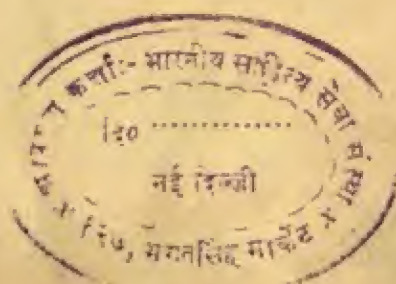 कर्त्ता:- भारतीय साहित्य सेवा संस्था X
दि० ...............
नई दिल्ली
X भगतसिंह मार्केट X